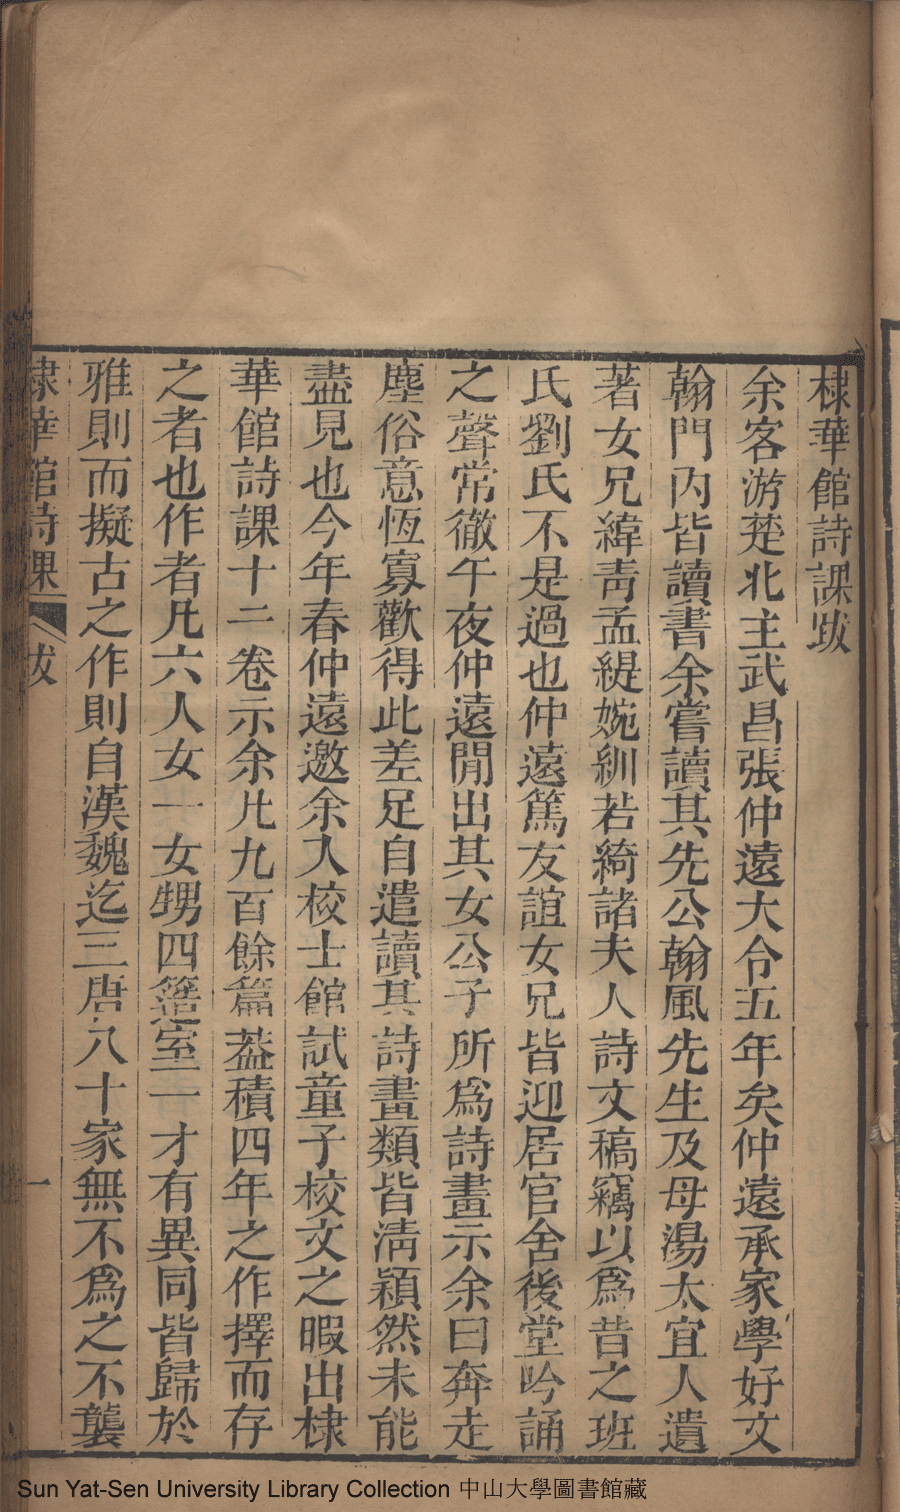 棣華館詩課跋
余客游楚北主武昌張仲遠大令五年矣仲遠承家學好文
翰門內皆讀書余嘗讀其先公翰風先生及母湯太宜人遺
著女兄緯靑孟緹婉紃若綺諸夫人詩文稿竊以爲昔之班
氏劉氏不是過也仲遠篤友誼女兄皆迎居官舍後堂吟誦
之聲常徹午夜仲遠閒出其女公子所爲詩畫示余曰奔走
塵俗意恆寡歡得此差足自遣讀其詩畫類皆淸穎然未能
盡見也今年春仲遠邀余入校士館試童子校文之暇出棣
華館詩課十二卷示余凡九百餘篇葢積四年之作擇而存
之者也作者凡六人女一女甥四簉室一才有異同皆歸於
雅則而擬古之作則自漢魏迄三唐八十家無不爲之不襲
棣華館詩課 跋 一
Sun Yat-Sen University Library Collection 中山大學圖書館藏